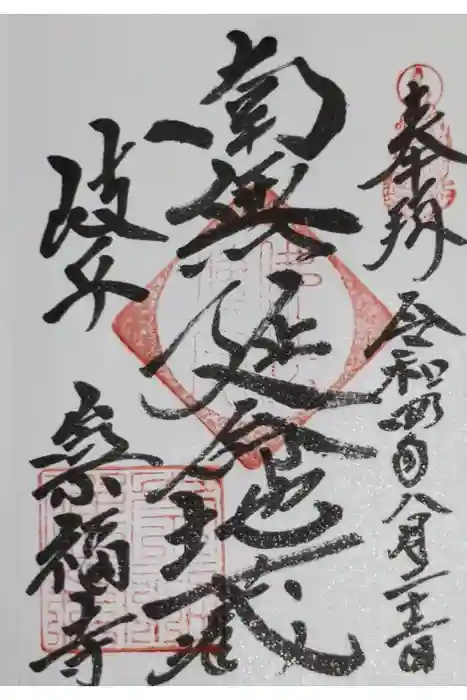 奉拝
令和四年八月二十三日
南無延命地蔵
岐阜
崇福寺